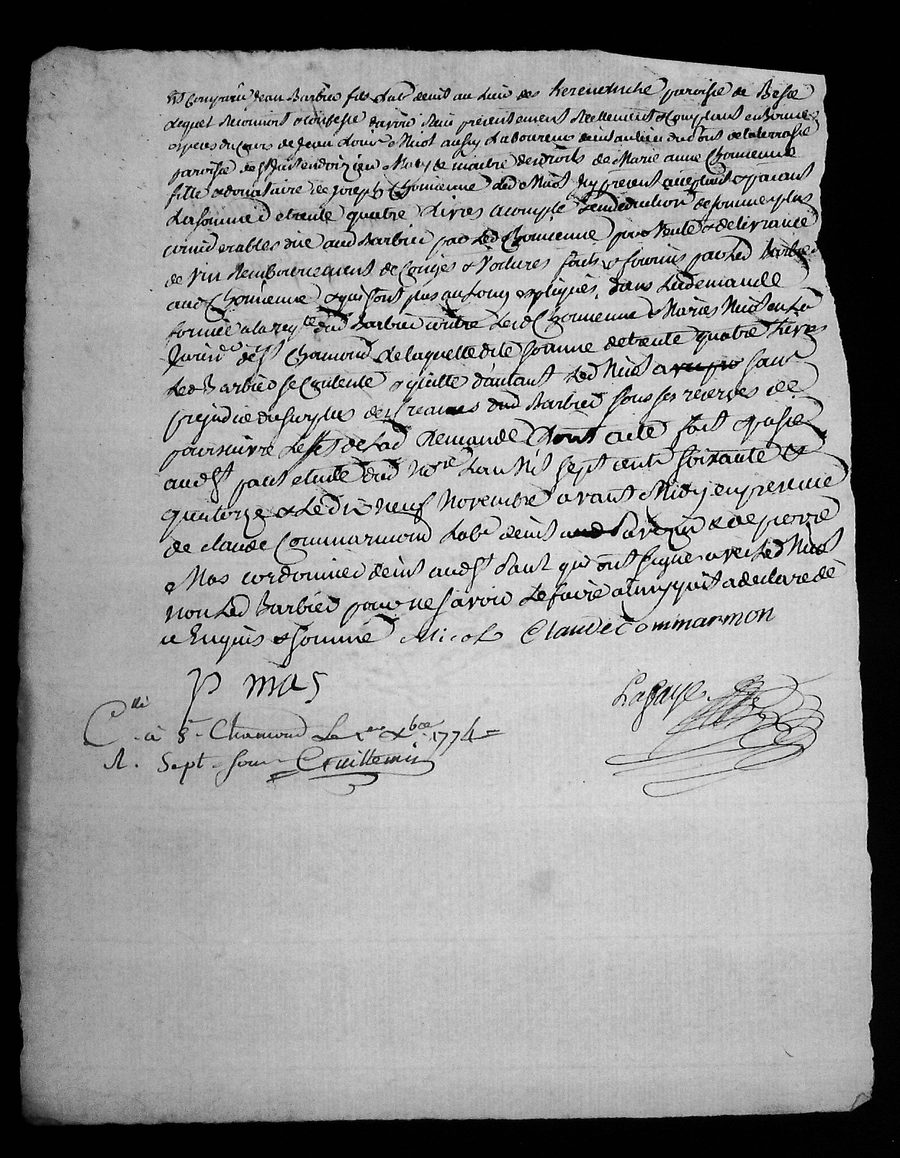 Est Comparu Jean Barbier fils Labr demt au lieu des paroisse de
Lequel Reconnoit & Confesse davoir Receu presentement Reellement & Comptant en bonnes
especes du Cours de Jean Louis Nicol aussy Laboureur demt au lieu du pont de la terrasse
paroisse de St Just en doizieu Mary & maitre des droits de Marie anne Chomienne
fille & donataire de joseph Chomienne Led Nicol Icy present acceptant & payant
La somme de trente quatre Livres a compte & en deduction de sommes plus
considerables due aud Barbier par Led Chomienne pour Vente & delivrance
de Vin Remboursement de Conges & Voitures faits & fournis par Led Barbier
aud Chomienne & qui sont plus au long expliqués dans La demande
formée a la reqte dud Barbier contre Lesd Chomienne & Mariés Nicol en La
Jurisdon de St Chamond de laquelle dite somme de trente quatre Livres
Led Barbier se Contente & quitte d'autant Led Nicol sans
prejudice du surplus des Creances dud Barbier sous ses reserves de
poursuivre Leffet de Lad Demande Dont acte fait & passé
aud St paul etude dud Nore Lan Mil sept cents soixante &
quatorze & Le dix neuf Novembre avant Midy en presence
de claude Commarmond Labr demt & de pierre
Mas cordonnier demt aud St Paul qui ont signé avec Led Nicol
non Led Barbier pour ne savoir Le faire ainsy quil a declaré de
ce Enquis & sommé Nicol Claude Commarmon
P mas
Lafaye
Cllé à St Chamond Le 1er Xbre 1774
R. Sept sous Guillemin